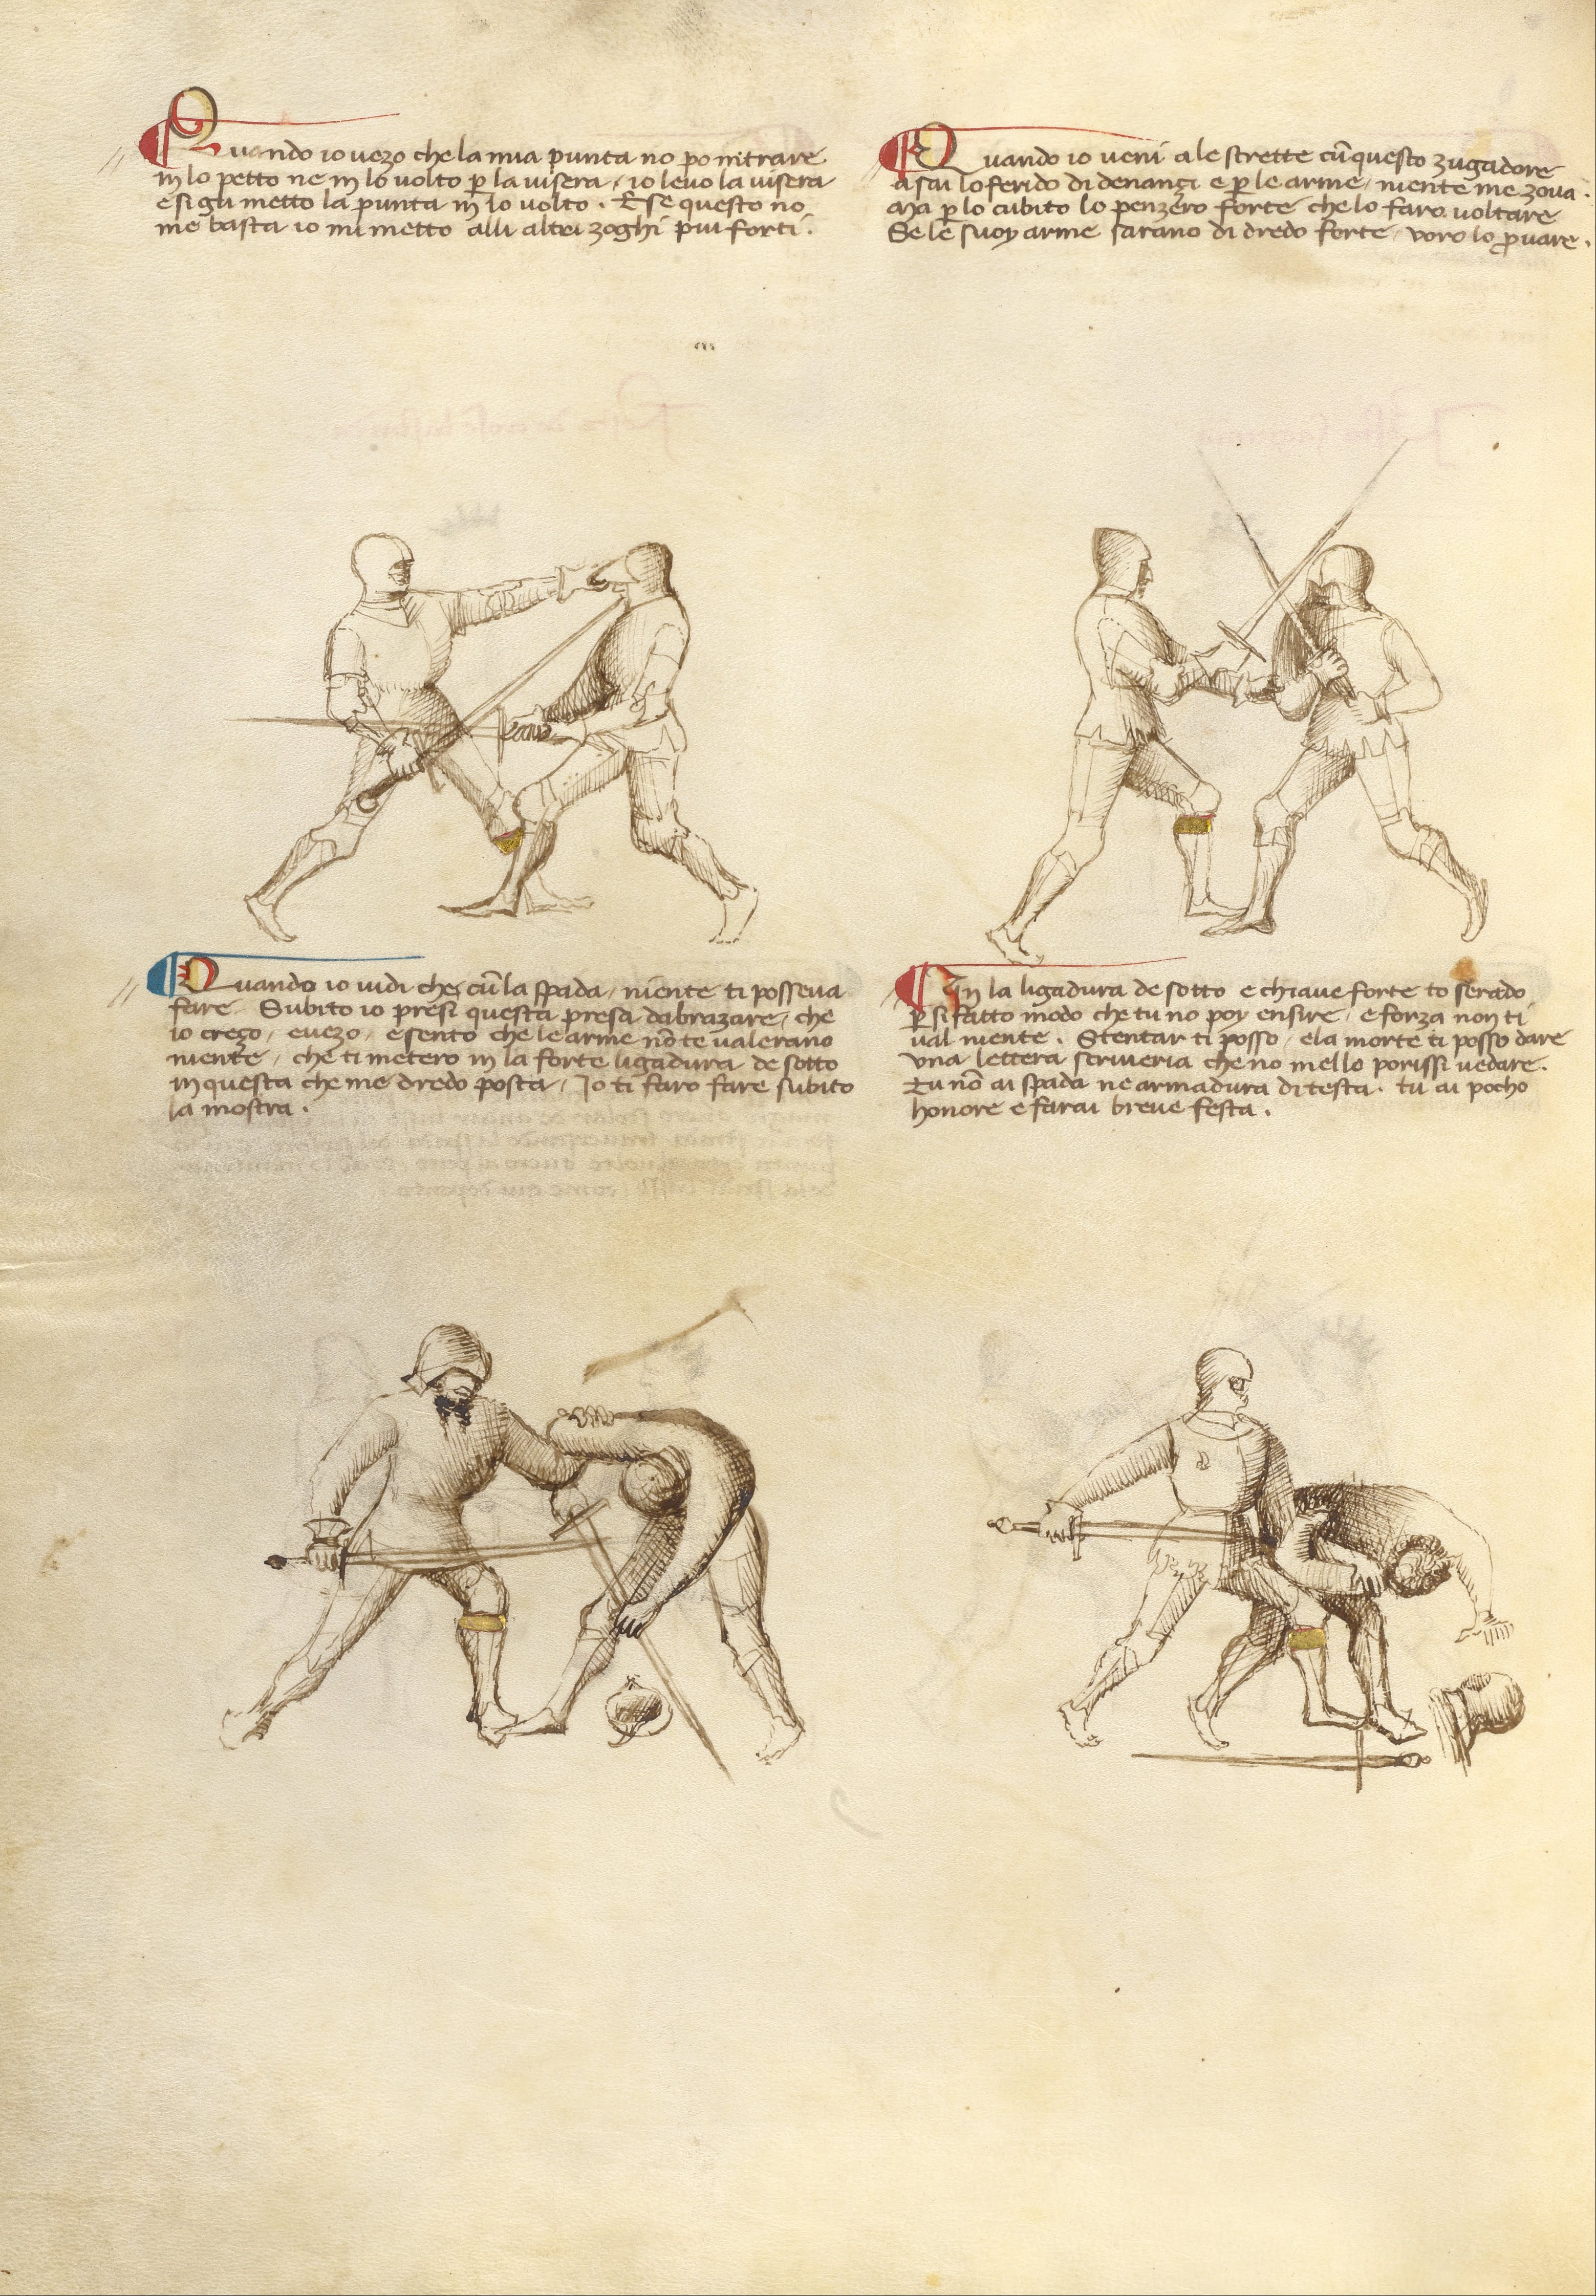 Quando io vezo che la mia punta no po intrare
in lo petto ne in lo volto p̲ la visera / io levo la visera
e si gli metto la punta in lo volto . E se questo no
me basta io mi metto alli altri zoghi piu forti .
Quando io veni a le strette cu̅ questo zugadore
asai lo ferido di denanci e p̲ le arme / niente me zova :
Ma p̲ lo cubito lo penzero forte che lo faro voltare
Se le suoy arme sarano di dredo forte / voro lo p̲vare .
Quando io vidi che cu̅ la spada / niente ti posseva
fare Subito io presi questa presa dabrazare / che
io crezo / e vezo / e sento che le arme no̅ te valerano
niente / che ti metero in la forte ligadura de sotto
in questa che me dredo posta / Io ti faro fare subito
la mostra .
In la ligadura de sotto e chiave forte to serado
p̲ si fatto modo che tu no poy ensire / e forza non ti
val niente . Stentar ti posso / e la morte ti posso dare
una lettera scriveria che no mello porissi vedare .
Tu no̅ ai spada ne armadura di testa . tu ai pocho
honore e farai breve festa .